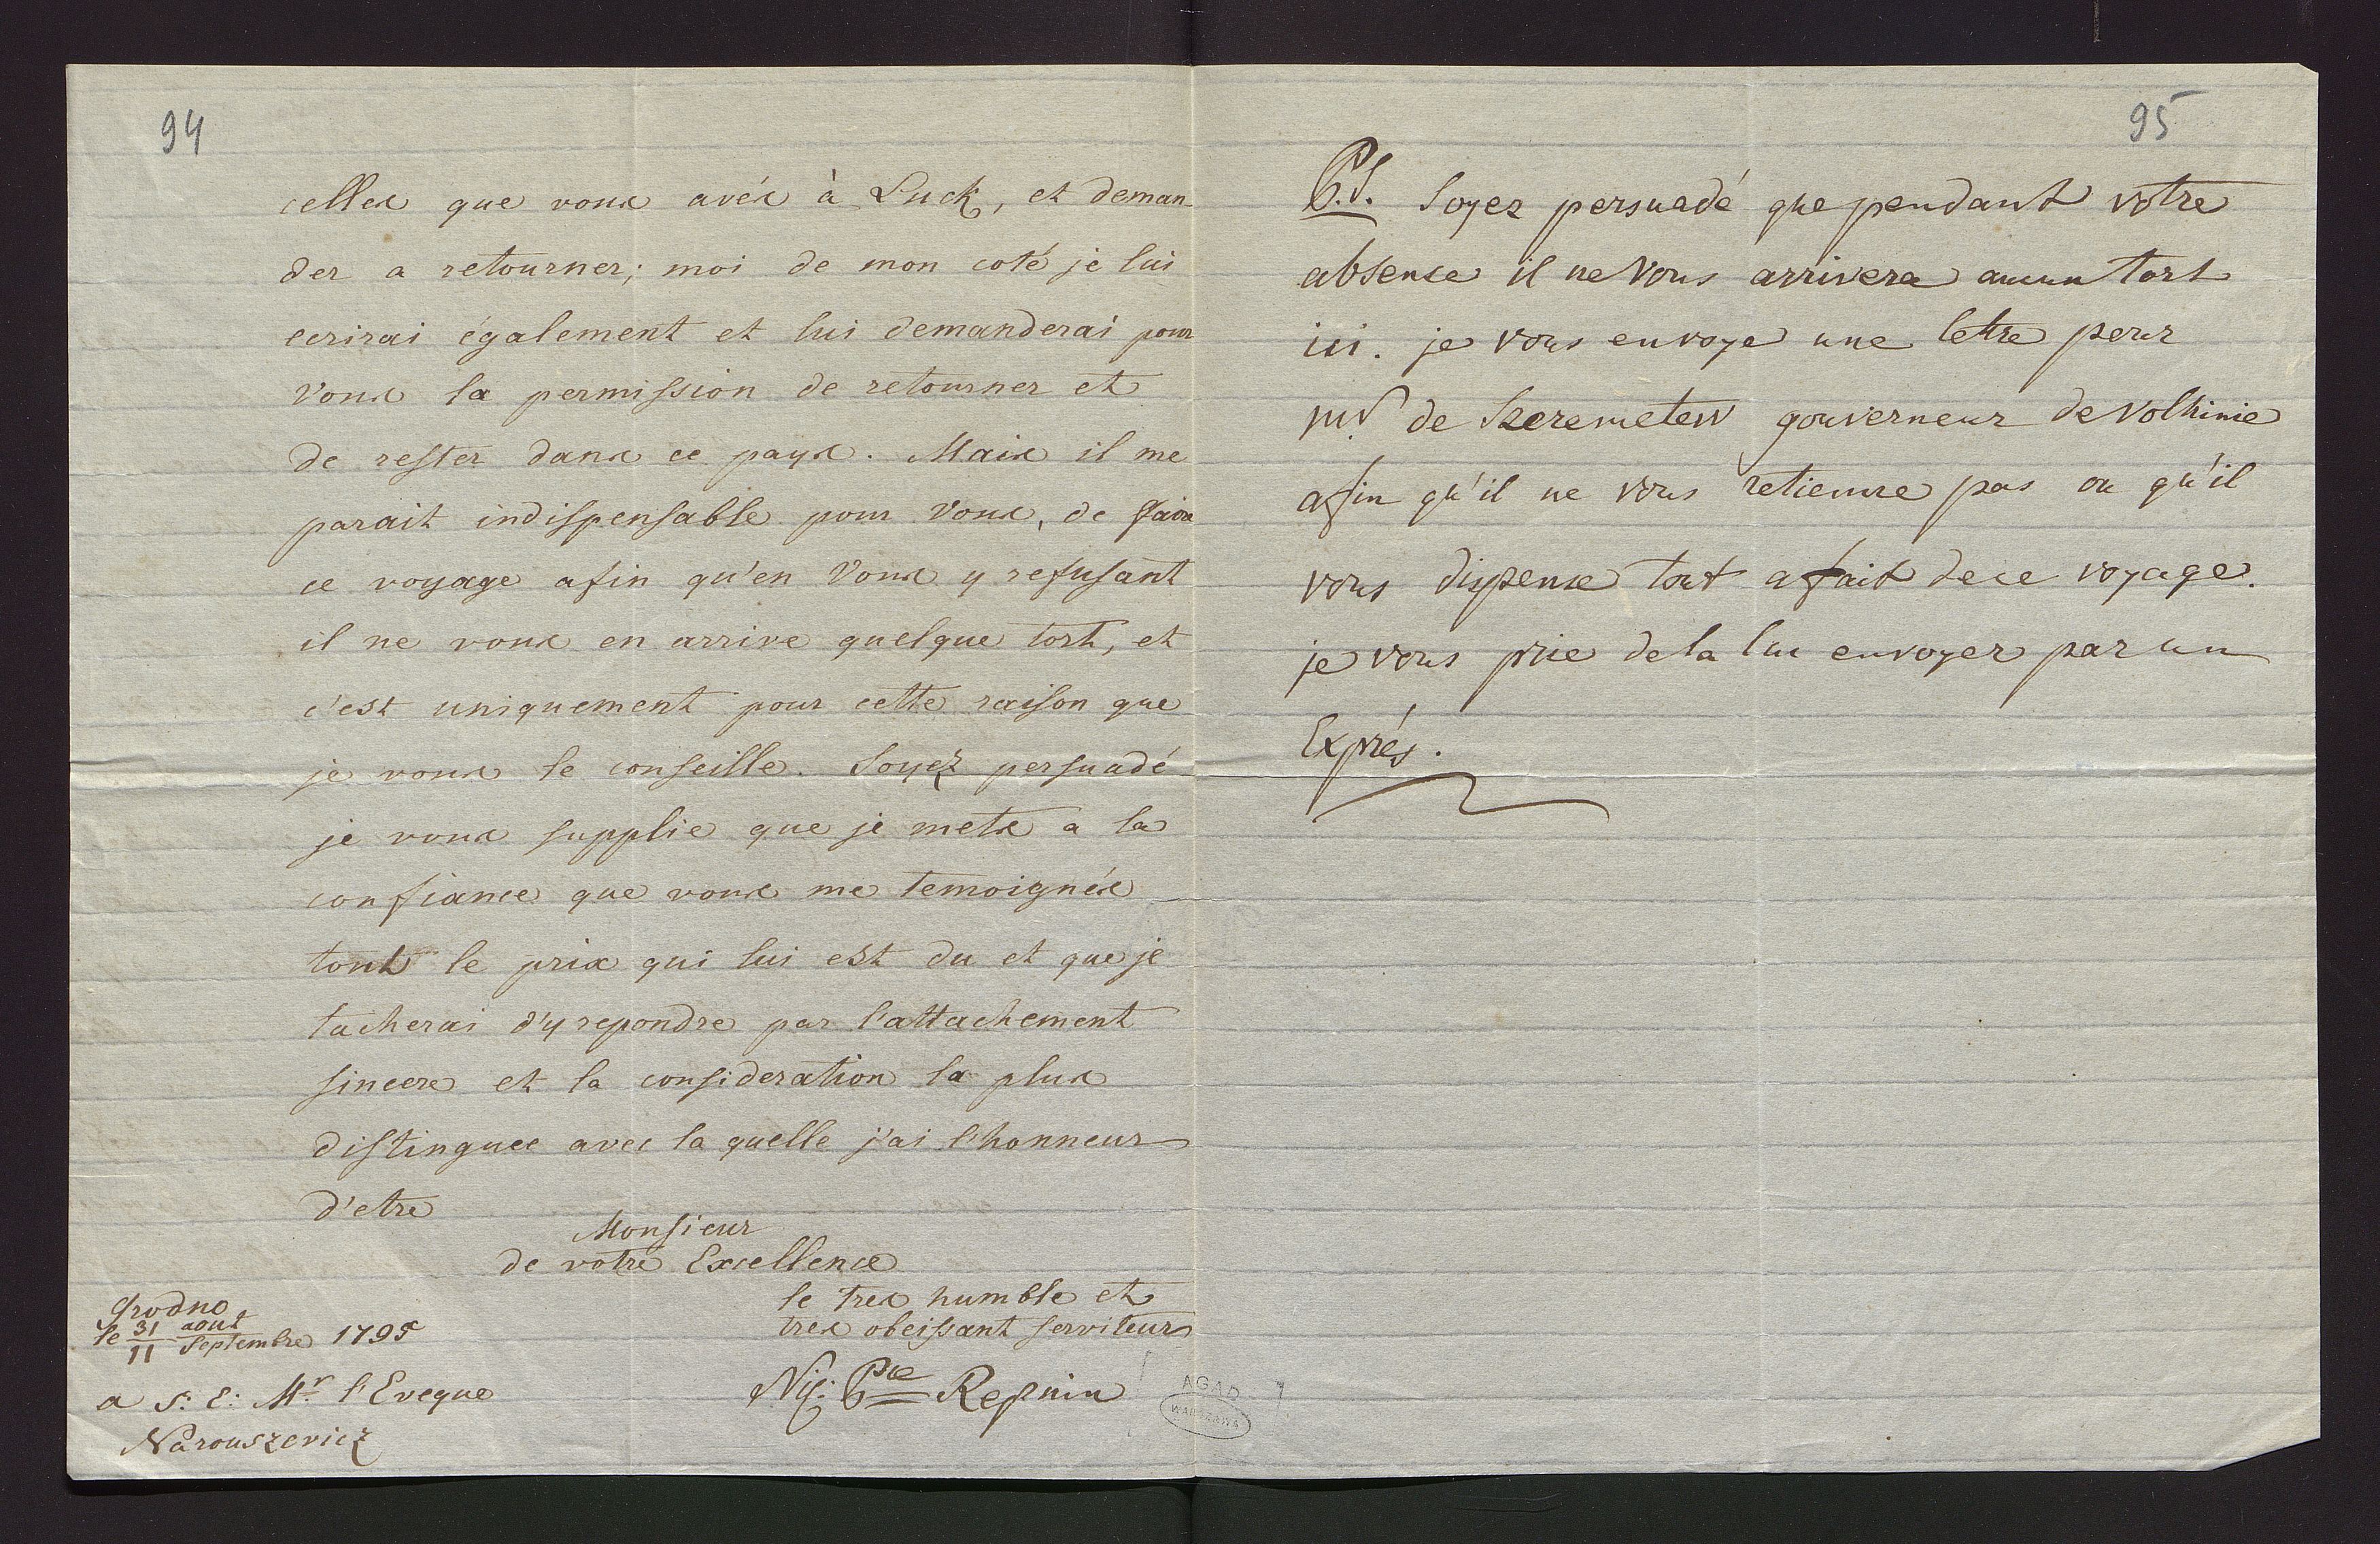 94
celles que vous avés à Luck, et deman
der a retourner; moi de mon coté je lui
ecrirai également et lui demanderai pour
vous la permission de retourner et
de rester dans ce pays. Mais il me
parait indispensable pour vous, de faire
ce voyage afin qu'en vous y refusant
il ne vous en arrive quelque tort, et
c'est uniquement pour cette raison que
je vous le conseille. Soyez persuadé
je vous supplie que je mets a la
confiance que vous me temoignés
tout le prix qui lui est du et que je
tacherai d'y repondre par l'attachement
sincere et la consideration la plus
distinguee avec la quelle j'ai l'honneur
d'etre
Monsieur
de votre Excellence
le tres humble et
tres obeissant serviteur
Grodno
le 31 aout
11 Septembre 1795
a S: E: Mr l'Eveque
Narouszevicz
Ni: Pce Repnin
AGAD
WARSZAWA
95
P.S. Soyez persuadé que pendant votre
absence il ne vous arrivera aucun tort
ici. je vous envoye une lettre pour
Mr de Szeremetew gouverneur de Volhinie
afin qu'il ne vous retienne pas ou qu'il
vous dispense tout a fait de ce voyage.
je vous prie de la lui envoyer par un
Exprés.